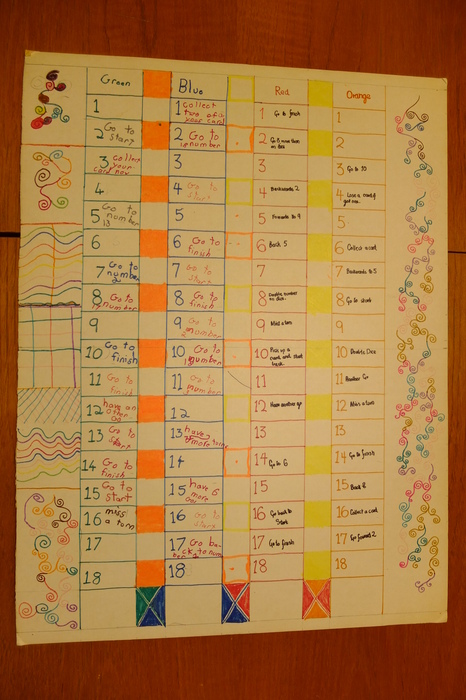 Green
Blue
Red
Orange
1
2 Go to
start
3 collect
your
card now
4
5 Go to
number
13
6
7 Go to
number
8 Go to
number
9
10 Go to
finish
11 Go to
finish
12 have an
other
Go
13 Go to
start
14 Go to
finish
15 Go to
start
16 miss
a torn
17
18
1 collect
two of
your card
2 Go to
number
3
4 Go to
start
5
6 Go to
finish
7 Go to
start
8 Go to
finish
9 Go to
number
10 Go to
number
11 Go to
number
12
13 have
more
14
15 have 6
more
16 Go to
start
17 Go ba-
ck to num
ber
18
1 Go to finish
2
3
4 Backwards 2
5 Forwards to 9
6 Back 5
7
8 Double number
on dice.
9 Miss a turn
10 Pick up a
card and start
back
11
12 Have another go
13
14 Go to 6
15
16 Go back to
Start
17 Go to finish
18
1
2
3 Go to 10
4 Lose a card if
got one.
5
6 Collect a card
7 Backwards to 5
8 Go to start
9
10 Double Dice
11 Another Go
12 Miss a turn
13
14 Go to finish
15 Back 8
16 Collect a card
17 Go forward 2
18